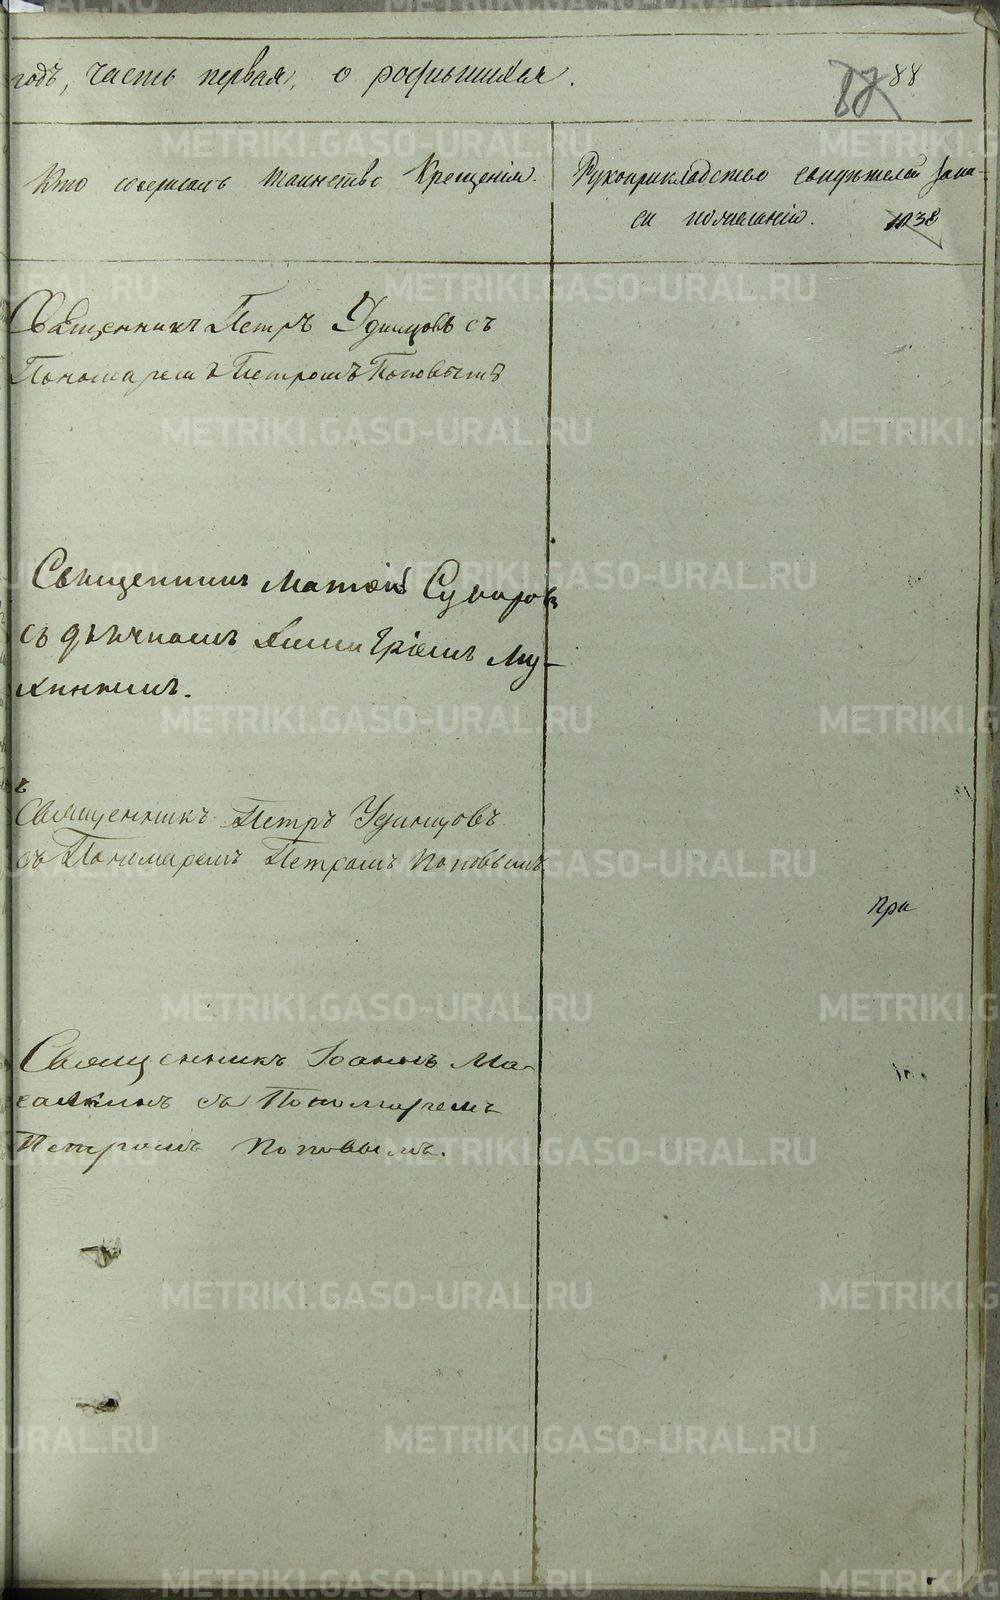 годъ, часть первая, о родившихся.
87 88
Кто совершалъ таинство Крещенія.
Рукоприкладство свидѣтелей запи-
си по желанію.
1038
Священникъ Петръ Удинцовъ съ
Пономаремъ Петромъ Поповымъ
Священникъ Матѳей Суворовъ
съ дьячкомъ Димитріемъ Му-
хинымъ.
Священникъ Петръ Удинцовъ
съ Пономаремъ Петромъ Поповымъ
при
Священникъ Іоаннъ Ма-
съ Пономаремъ
Петромъ Поповымъ.
METRIKI.GASO-URAL.RU